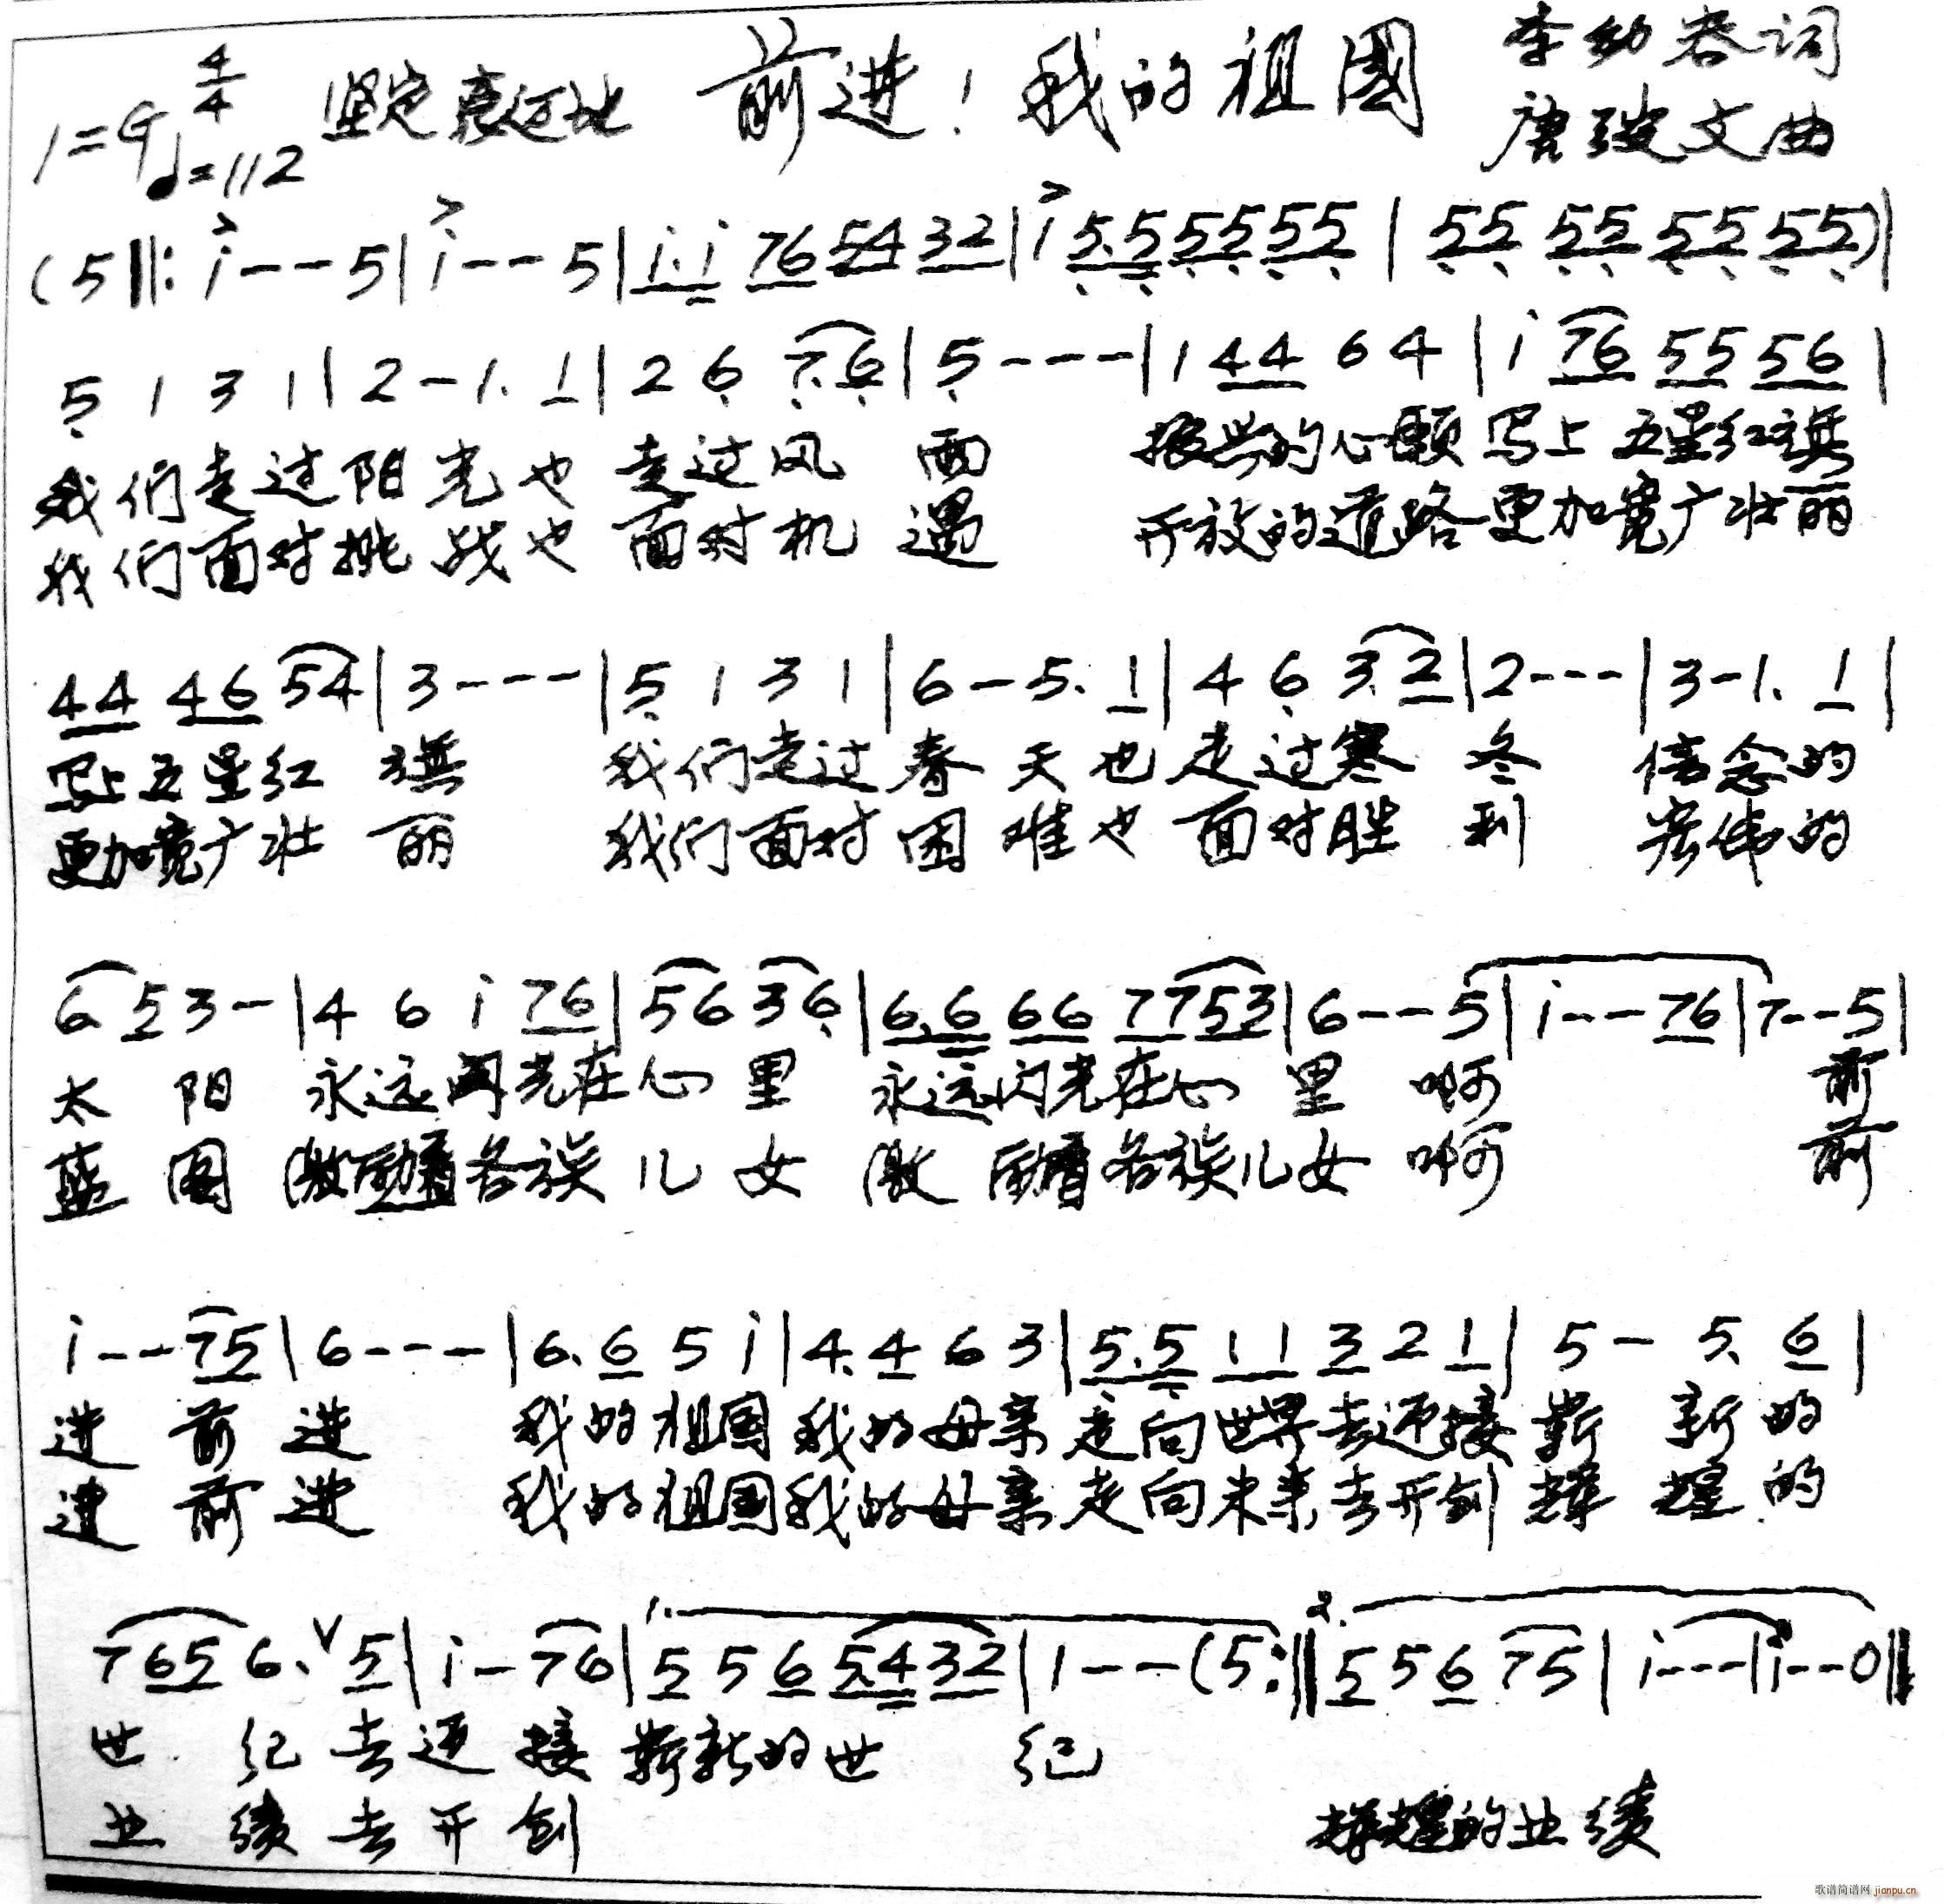 1=G 4/4 ♩=112 坚定豪迈地 前进！我的祖國 李幼容词
唐诃文曲
(5‖: i - - 5 | i - - 5 | i. i 76 54 32 | i 5.5 55 55 | 55 55 55 55) |
5 1 3 1 | 2 - 1. 1 | 2 6 7.6 | 5 - - - | 1 44 6 4 | i 76 55 56 |
我们走过阳光也走过风雨 振兴的心愿写上五星红旗
我们面对挑战也面对机遇 开放的道路更加宽广壮丽
44 46 54 | 3 - - - | 5 1 3 1 | 6 - 5. 1 | 4 6 3.2 | 2 - - - | 3 - 1. 1 |
写上五星红旗 我们走过春天也走过寒冬 信念的
更加宽广壮丽 我们面对困难也面对胜利 宏伟的
6. 5 3 - | 4 6 i 76 | 56 36 | 6.6 66 7753 | 6 - - 5 | i - - 76 | 7 - - 5 |
太阳 永远闪光在心里 永远闪光在心里 啊 前
蓝图 激励着各族儿女 激励着各族儿女 啊 前
i - - 75 | 6 - - - | 6. 6 5 i | 4. 4 6 3 | 5.5 11 3 2 1 | 5 - 5. 6 |
进 前进 我的祖国我的母亲走向世界去迎接崭新的
进 前进 我的祖国我的母亲走向未来去开创辉煌的
7 65 6. ∨ 5 | i - 76 | 1. 5 5 6 5.4 32 | 1 - - (5 :‖ 2. 5 5 6 75 | i - - - | i - - 0 ‖
世纪去迎接崭新的世纪
业绩去开创 辉煌的业绩
歌谱简谱网 jianpu.cn